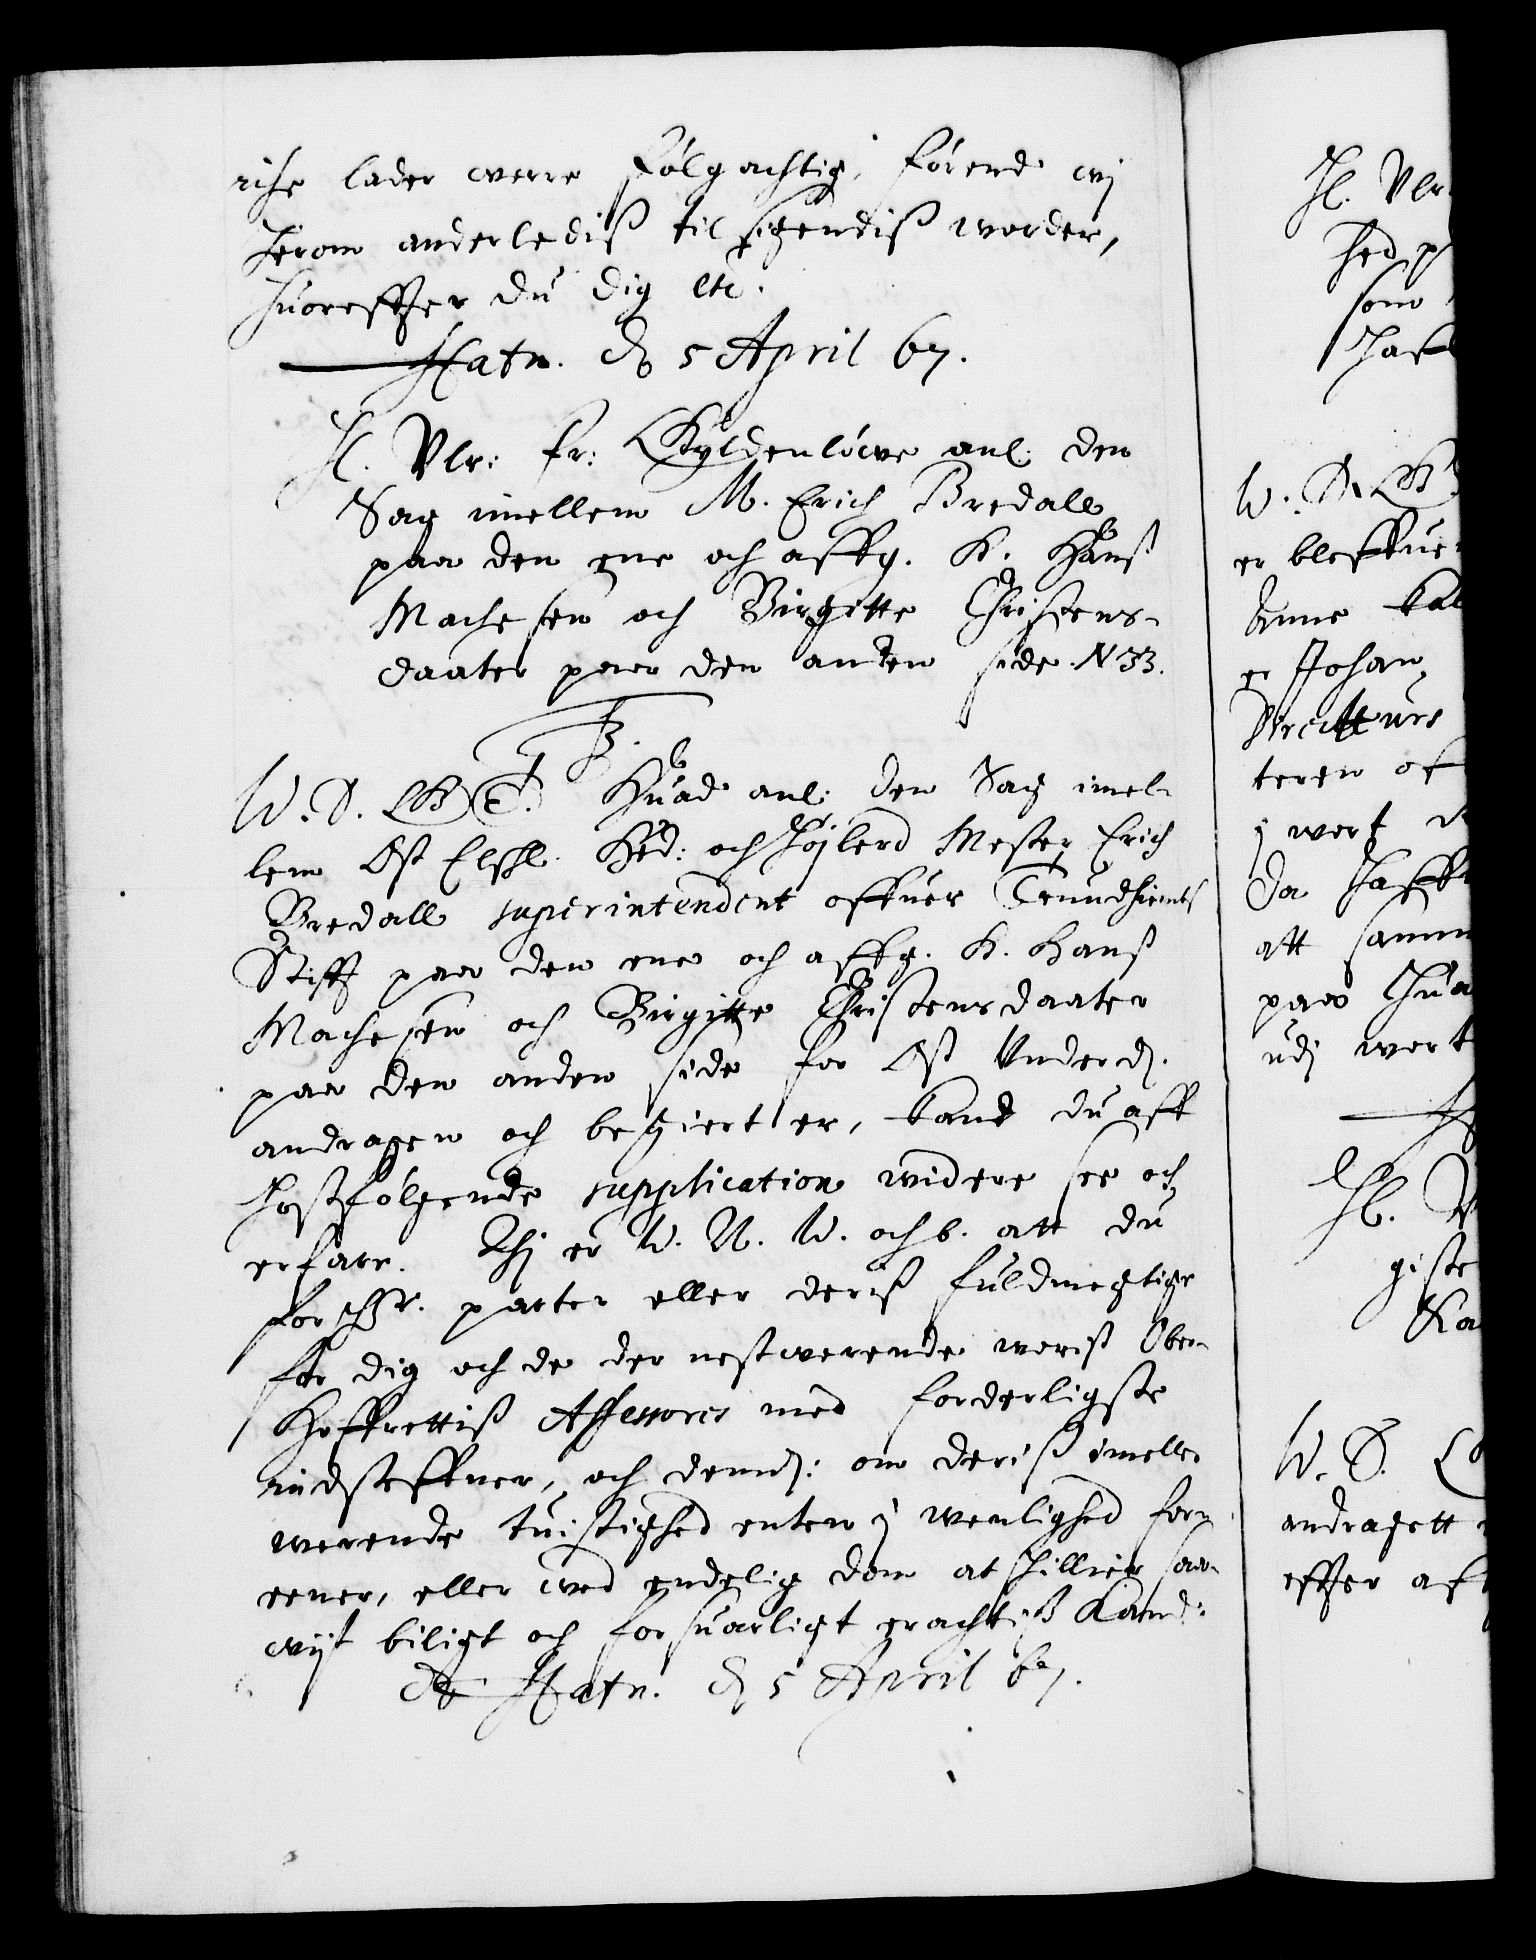 riche lader werre følgachtig, førend wj
herom anderlediß tilsigendiß worder,
huorefter du dig etc.
Hafn. d. 5 April 67.
H. Vlr: Fr: Gyldenløwe anl. den
Sag imellem M. Erich Bredall
paa den ene och affg. K. Hanß
Machesen och Birgitte Christens-
daater paa den anden side N 33.
F3.
W. S. G. E. T. Huad anl: den Sag imel-
lem Oß Elskl. Hed: och Højlerd Mester Erich
Bredall superintendent offuer Trundhiembs
Stift paa den ene och affg. K. Hanß
Machesen och Birgitte Christensdaater
paa den anden side for Oß Underd.
andragen och begiert er, kand du aff
hosfølgende supplication widere see och
erfare. Thj er W. N. W. och b. att du
forschr. parter eller deriß fuldmegtige
for dig och de der nestwerende woriß Ober-
Hoffrettiß Assessores med forderligste
indsteffner, och demd: om deriß imellem
werende tuistighed enten j wenlighed for-
eener, eller wed endelig dom at skillier saa-
wijt biligt och forsuarligt erachtiß Kand:
Hafn. d. 5 April 67.
H. Vlr.
hed
som
Haf
W. S. G
er bleffuen
Anne Kal
e Johan
Directeurs
teren of
j wert
da Haff
att samm
paa Hua
udj wert
H. V
giste
Ka
W. S. G
andragett
effter aff